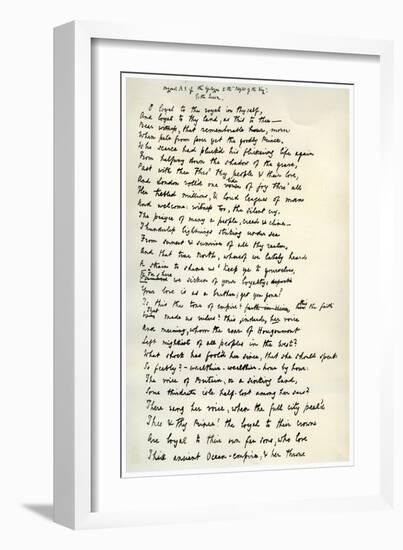 Original MS of the Epilogue to the "Idylls of the King".
To the Queen.
O loyal to the royal in thyself,
And loyal to thy land, as this to thee—
Bear witness, that rememberable hour, when
When pale from fever yet the goodly Prince,
Who scarce had pluck'd his flickering life again
From halfway down the shadow of the grave,
Past with thee thro' thy people & their love,
And London roll'd one tide of joy thro' all
Her trebled millions, & loud leagues of man
And welcome: witness too, the silent cry,
The prayer of many a people, creed & clime—
Thunderless lightnings striking under sea
From sunset & sunrise of all thy realm,
And that true North, whereof we lately heard
A strain to shame us! 'keep ye to yourselves,
we sicken of your loyalty
Your love is as a burthen: get you gone!'
Is this the tone of empire? faith in them, here the faith
That made us rulers? this indeed, her voice
And meaning, whom the roar of Hougoumont
Left mightiest of all peoples in the West?
What shock has fool'd her since, that she should speak
So feebly? — wealthier — wealthier — hour by hour:
The voice of Britain, or a sinking land,
Some third-rate isle half-lost among her seas?
There rang her voice, when the full city peal'd
Thee & thy Prince! the loyal to their crown
Are loyal to their own far sons, who love
Their ancient Ocean-empire, & her throne